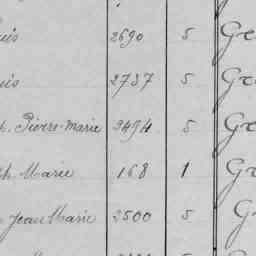 uis 2690 5 Gr
uis 2737 5 Gr
h. Pierre-Marie 3494 5 Gr
ph. Marie 168 1 Gr
Jean Marie 2500 5 G